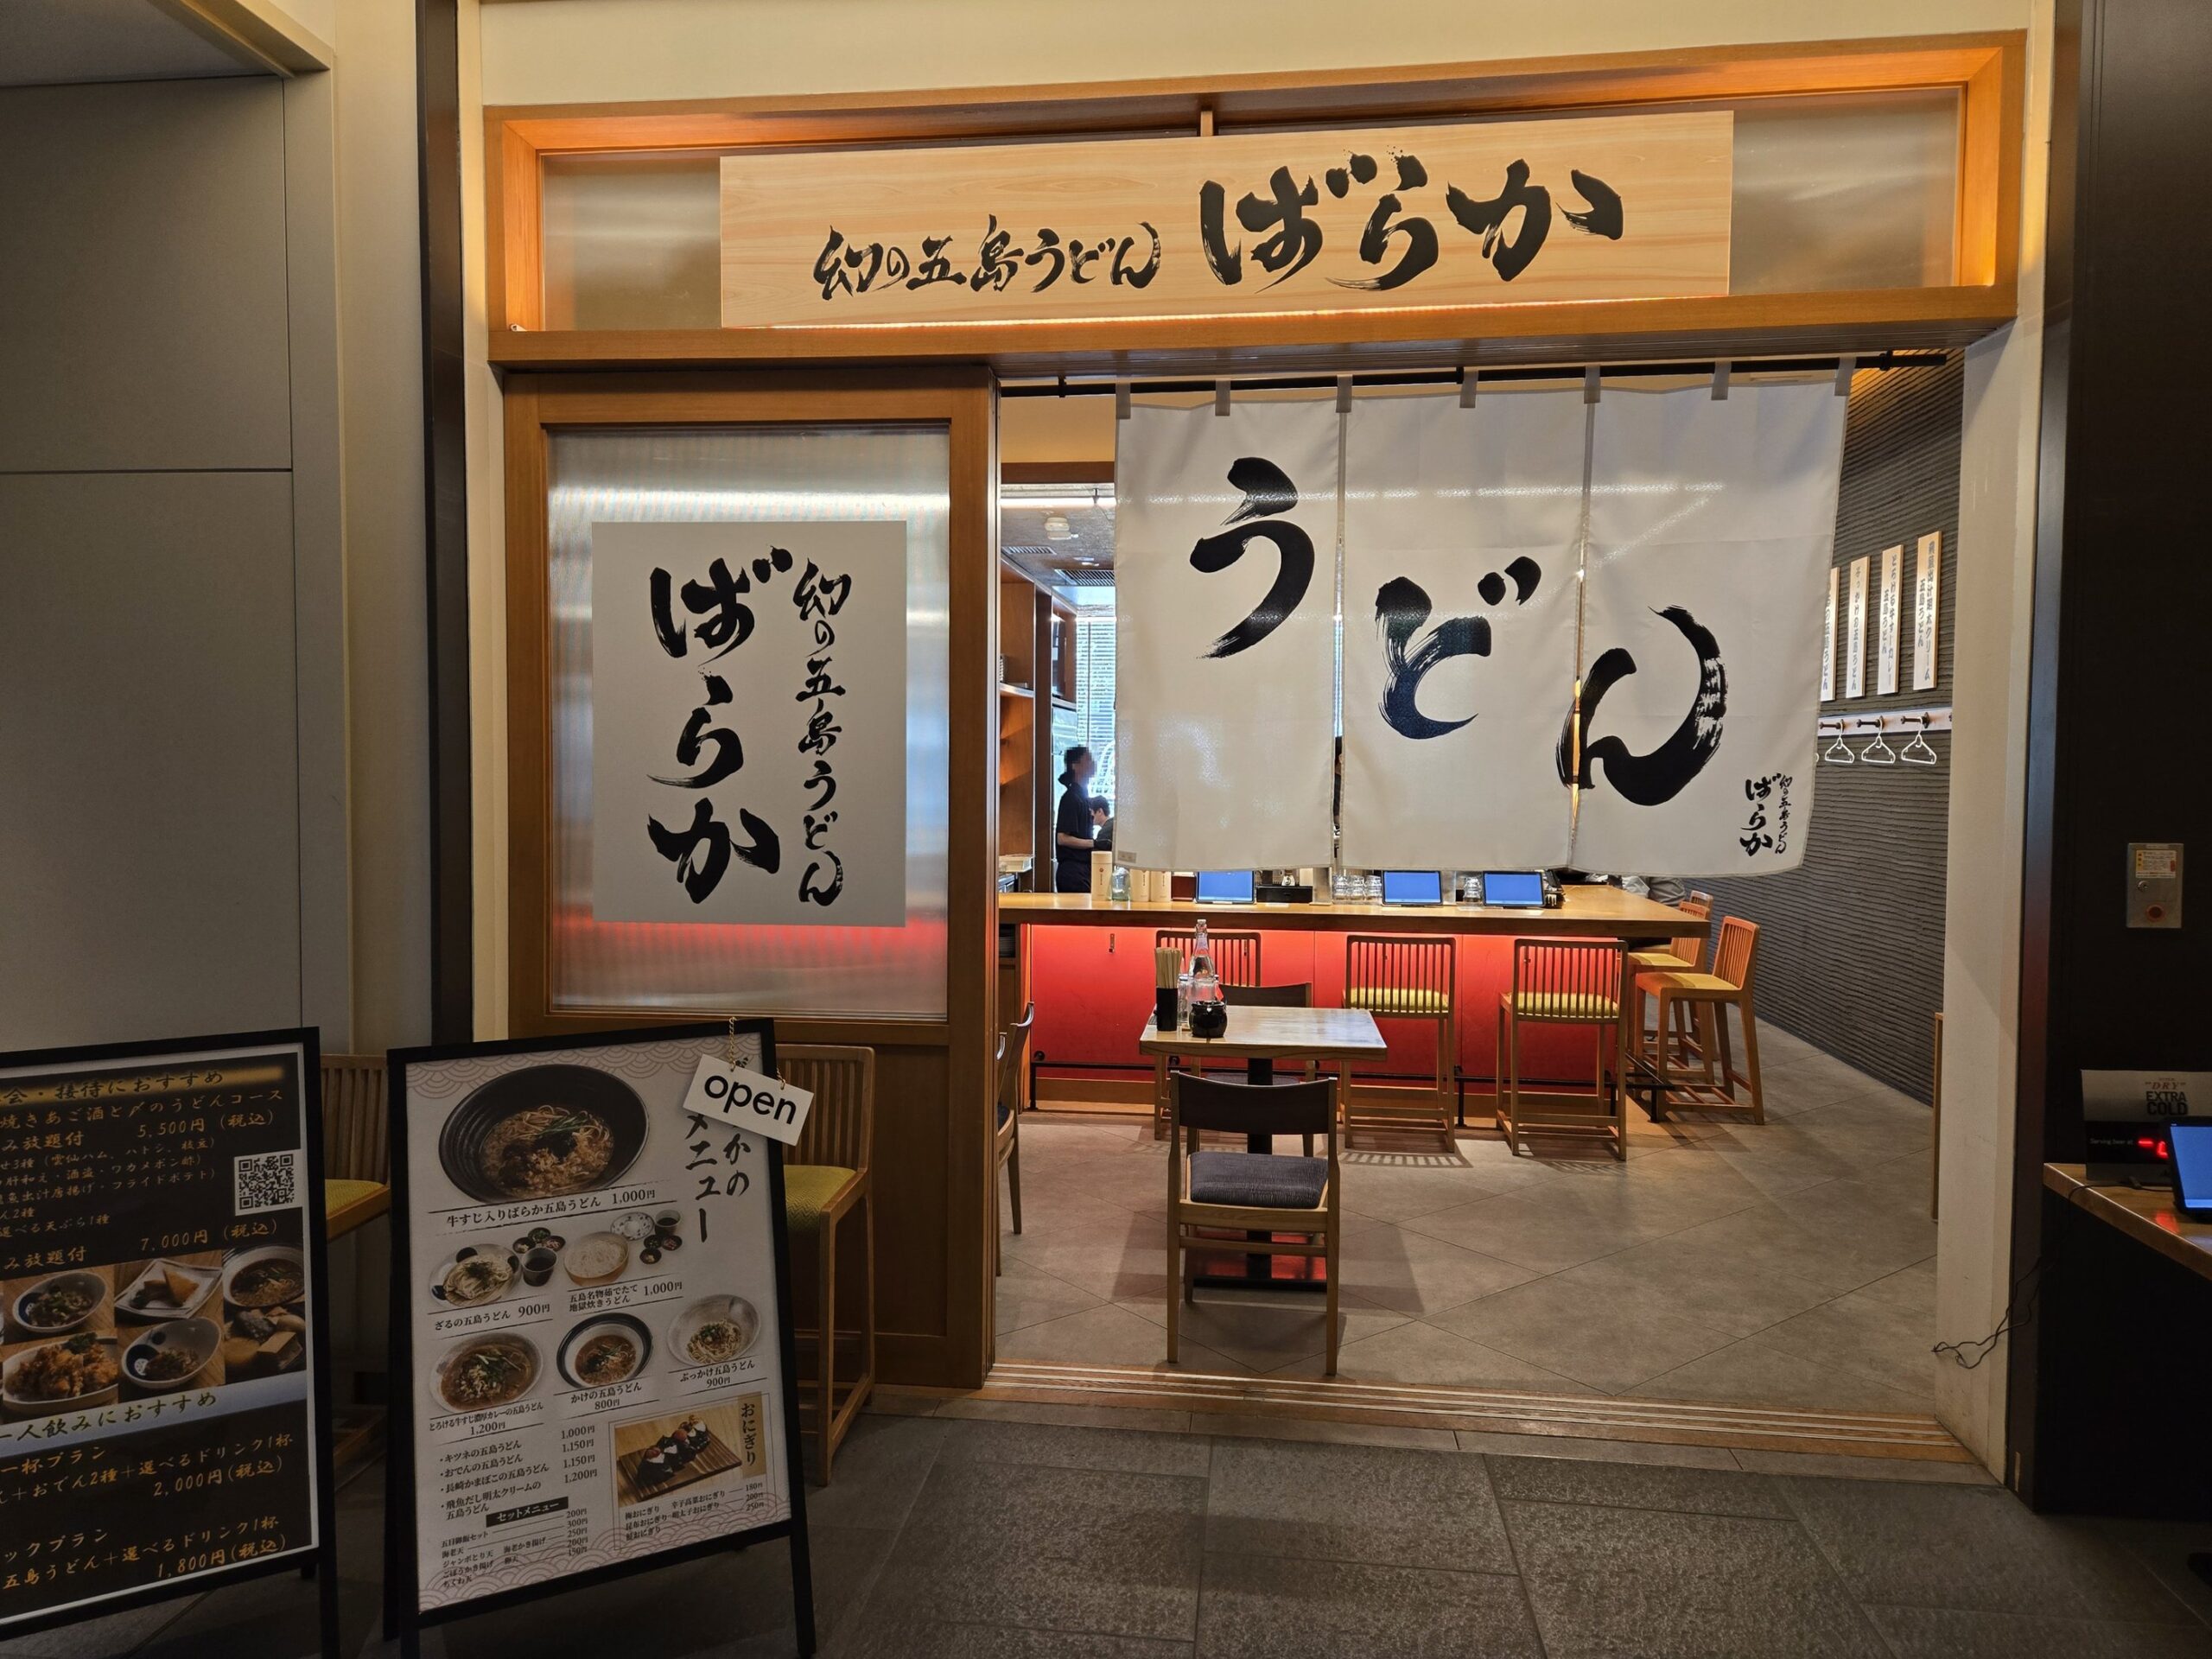 幻の五島うどん ばらか
幻の五島うどん
ばらか
うどん
幻の五島うどん
ばらか
open
かの
メニュー
牛すじ入りばらか五島うどん 1,000円
ざるの五島うどん 900円
五島名物茹でたて
地獄炊きうどん 1,000円
とろける牛すじ濃厚カレーの五島うどん
1,200円
かけの五島うどん
800円
ぶっかけ五島うどん
900円
・キツネの五島うどん 1,000円
・おでんの五島うどん 1,150円
・長崎かまぼこの五島うどん 1,150円
・飛魚だし明太クリームの
五島うどん 1,200円
おにぎり
セットメニュー
会・接待におすすめ
焼きあご酒と〆のうどんコース
み放題付 5,500円 (税込)
せ3種 (雲仙ハム、ハトシ、枝豆)
肝和え・酒盗・ワカメポン酢)
出汁唐揚げ・フライドポテト)
ん2種
選べる天ぷら1種
み放題付 7,000円 (税込)
一人飲みにおすすめ
一杯プラン
+おでん2種+選べるドリンク1杯
2,000円(税込)
ックプラン
五島うどん+選べるドリンク1杯
1,800円(税込)
"DRY"
EXTRA
COLD